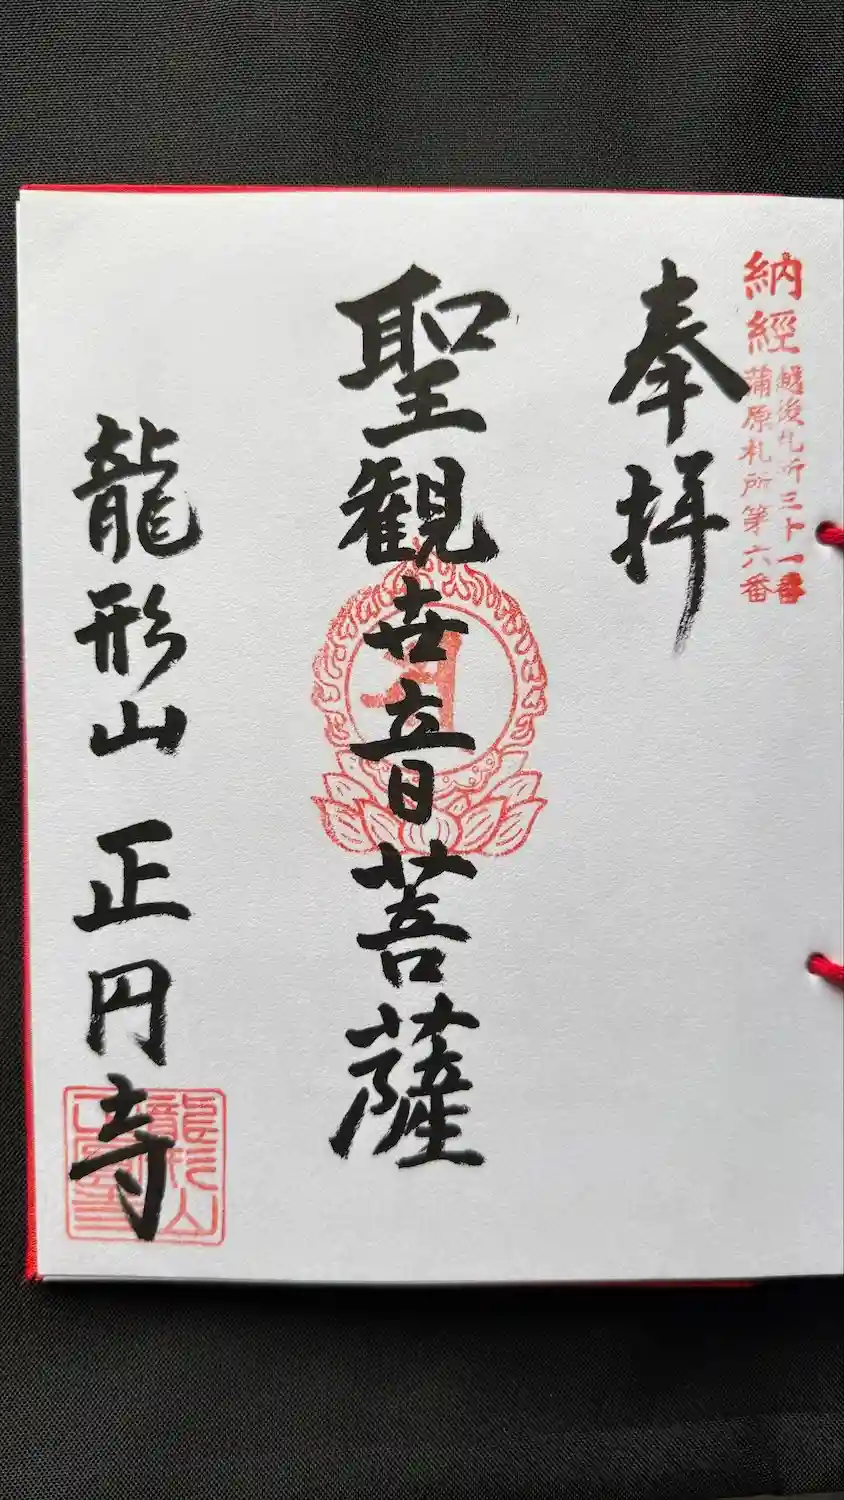 納經
越後札所三十一番
蒲原札所第六番
奉拝
聖観世音菩薩
龍形山 正円寺
龍形山
正圓寺